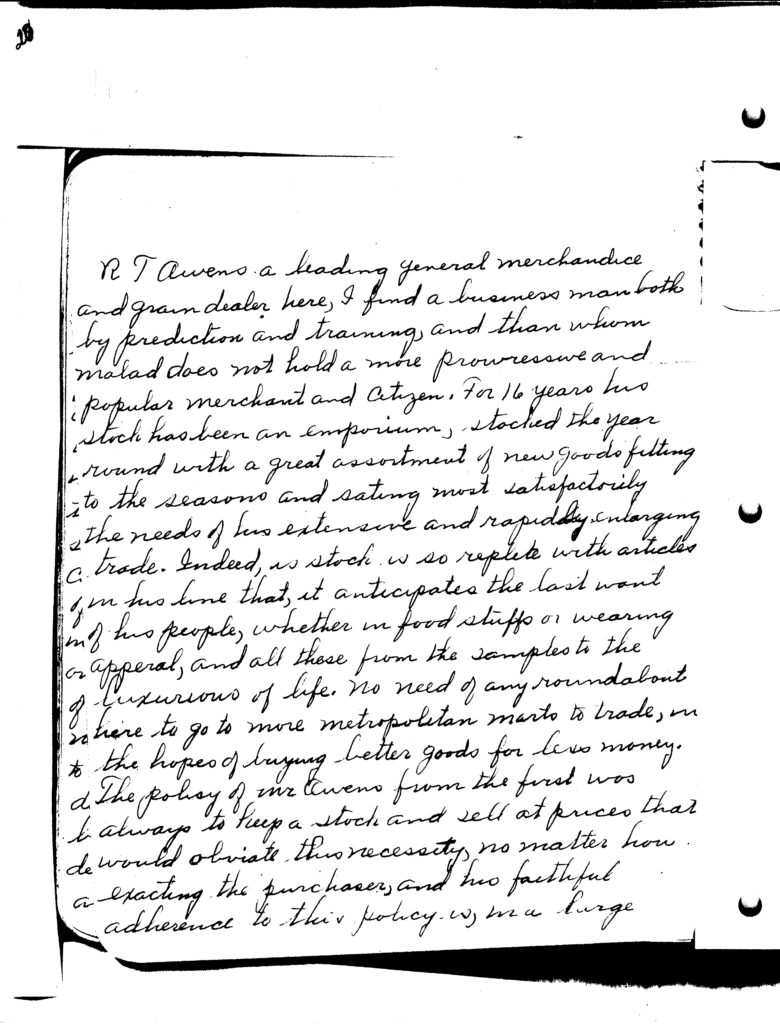 28
R T Owens a leading general merchandice
and grain dealer here, I find a business man both
by prediction and training, and than whom
malad does not hold a more prowressive and
popular merchant and Citizen. For 16 years his
stock has been an emporium, stocked the year
round with a great assortment of new goods fitting
to the seasons and sating most satisfactorily
the needs of his extensive and rapidly enlarging
trade. Indeed, is stock is so replete with articles
in his line that, it anticipates the last want
of his people, whether in food stuffs or wearing
apperal, and all these from the samples to the
luxurious of life. No need of any roundabout
here to go to more metropolitan marts to trade, in
the hopes of buying better goods for less money.
The policy of mr Owens from the first was
always to keep a stock and sell at prices that
would obviate this necessity, no matter how
exacting the purchaser, and his faithful
adherence to this policy is, in a large